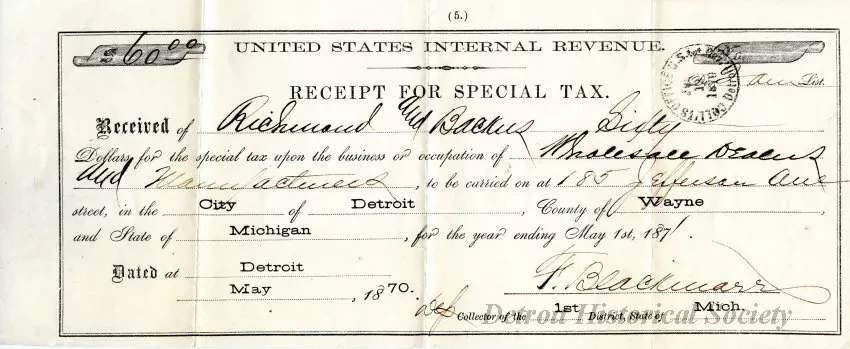 (5.)
$60.00
UNITED STATES INTERNAL REVENUE.
RECEIPT FOR SPECIAL TAX.
List.
Received of Richmond and Backus Sixty
Dollars for the special tax upon the business or occupation of Wholesale Dealers
And Manufacturers, to be carried on at 185 Jefferson Ave
street, in the City of Detroit, County of Wayne,
and State of Michigan, for the year ending May 1st, 1871.
Dated at Detroit
May, 1870.
F. Blackmarr
Collector of the 1st District, State of Mich.
Detroit Historical Society